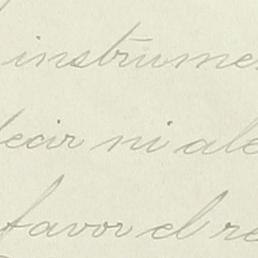 instrume
decir ni ale
favor el re